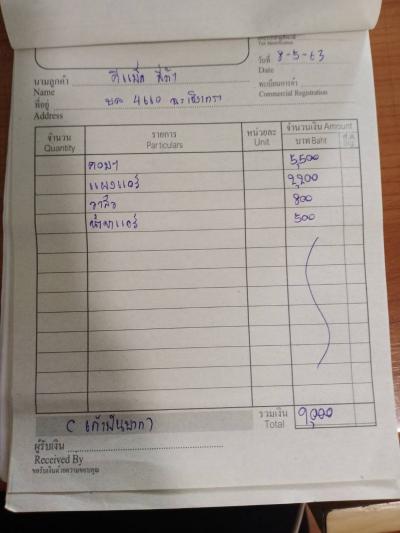 Tax Identification
วันที่ 8-5-63
Date
นามลูกค้า ดีแม็ก สีดำ
Name
ทะเบียนการค้า
Commercial Registration
ที่อยู่ บด 4660 ฉะเชิงเทรา
Address
จำนวน รายการ หน่วยละ จำนวนเงิน Amount
Quantity Particulars Unit บาท Baht
คอมฯ 5,500
แผงแอร์ 2,200
วาล์ว 800
น้ำยาแอร์ 500
รวมเงิน 9,000
Total
( เก้าพันบาท )
ผู้รับเงิน
Received By
ขอรับเงินด้วยความขอบคุณ